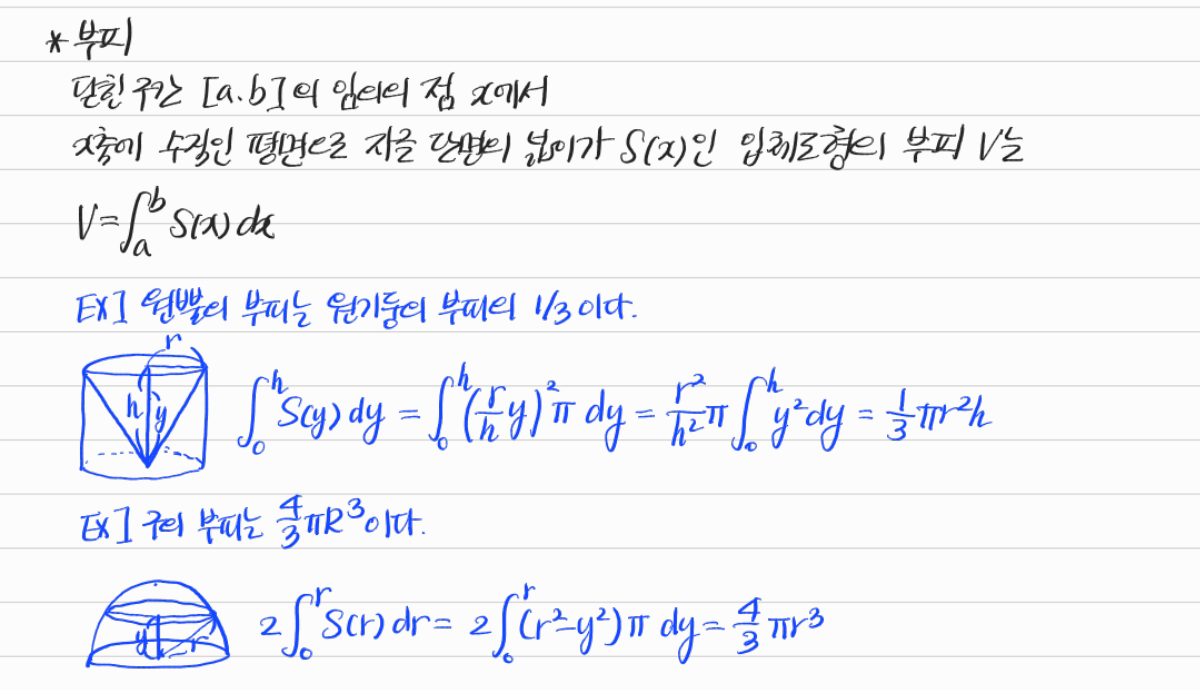 * 부피
닫힌 구간 [a.b]의 임의의 점 x에서
x축에 수직인 평면으로 자를 단면의 넓이가 S(x)인 입체도형의 부피 V는
V=∫_a^b S(x) dx
EX] 원뿔의 부피는 원기둥의 부피의 1/3 이다.
r
h y ∫_0^h S(y) dy = ∫_0^h (r/h y)²π dy = r²/h² π ∫_0^h y²dy = 1/3 πr²h
EX] 구의 부피는 4/3 πR³이다.
y r 2∫_0^r S(r) dr = 2∫_0^r (r²-y²)π dy = 4/3 πr³